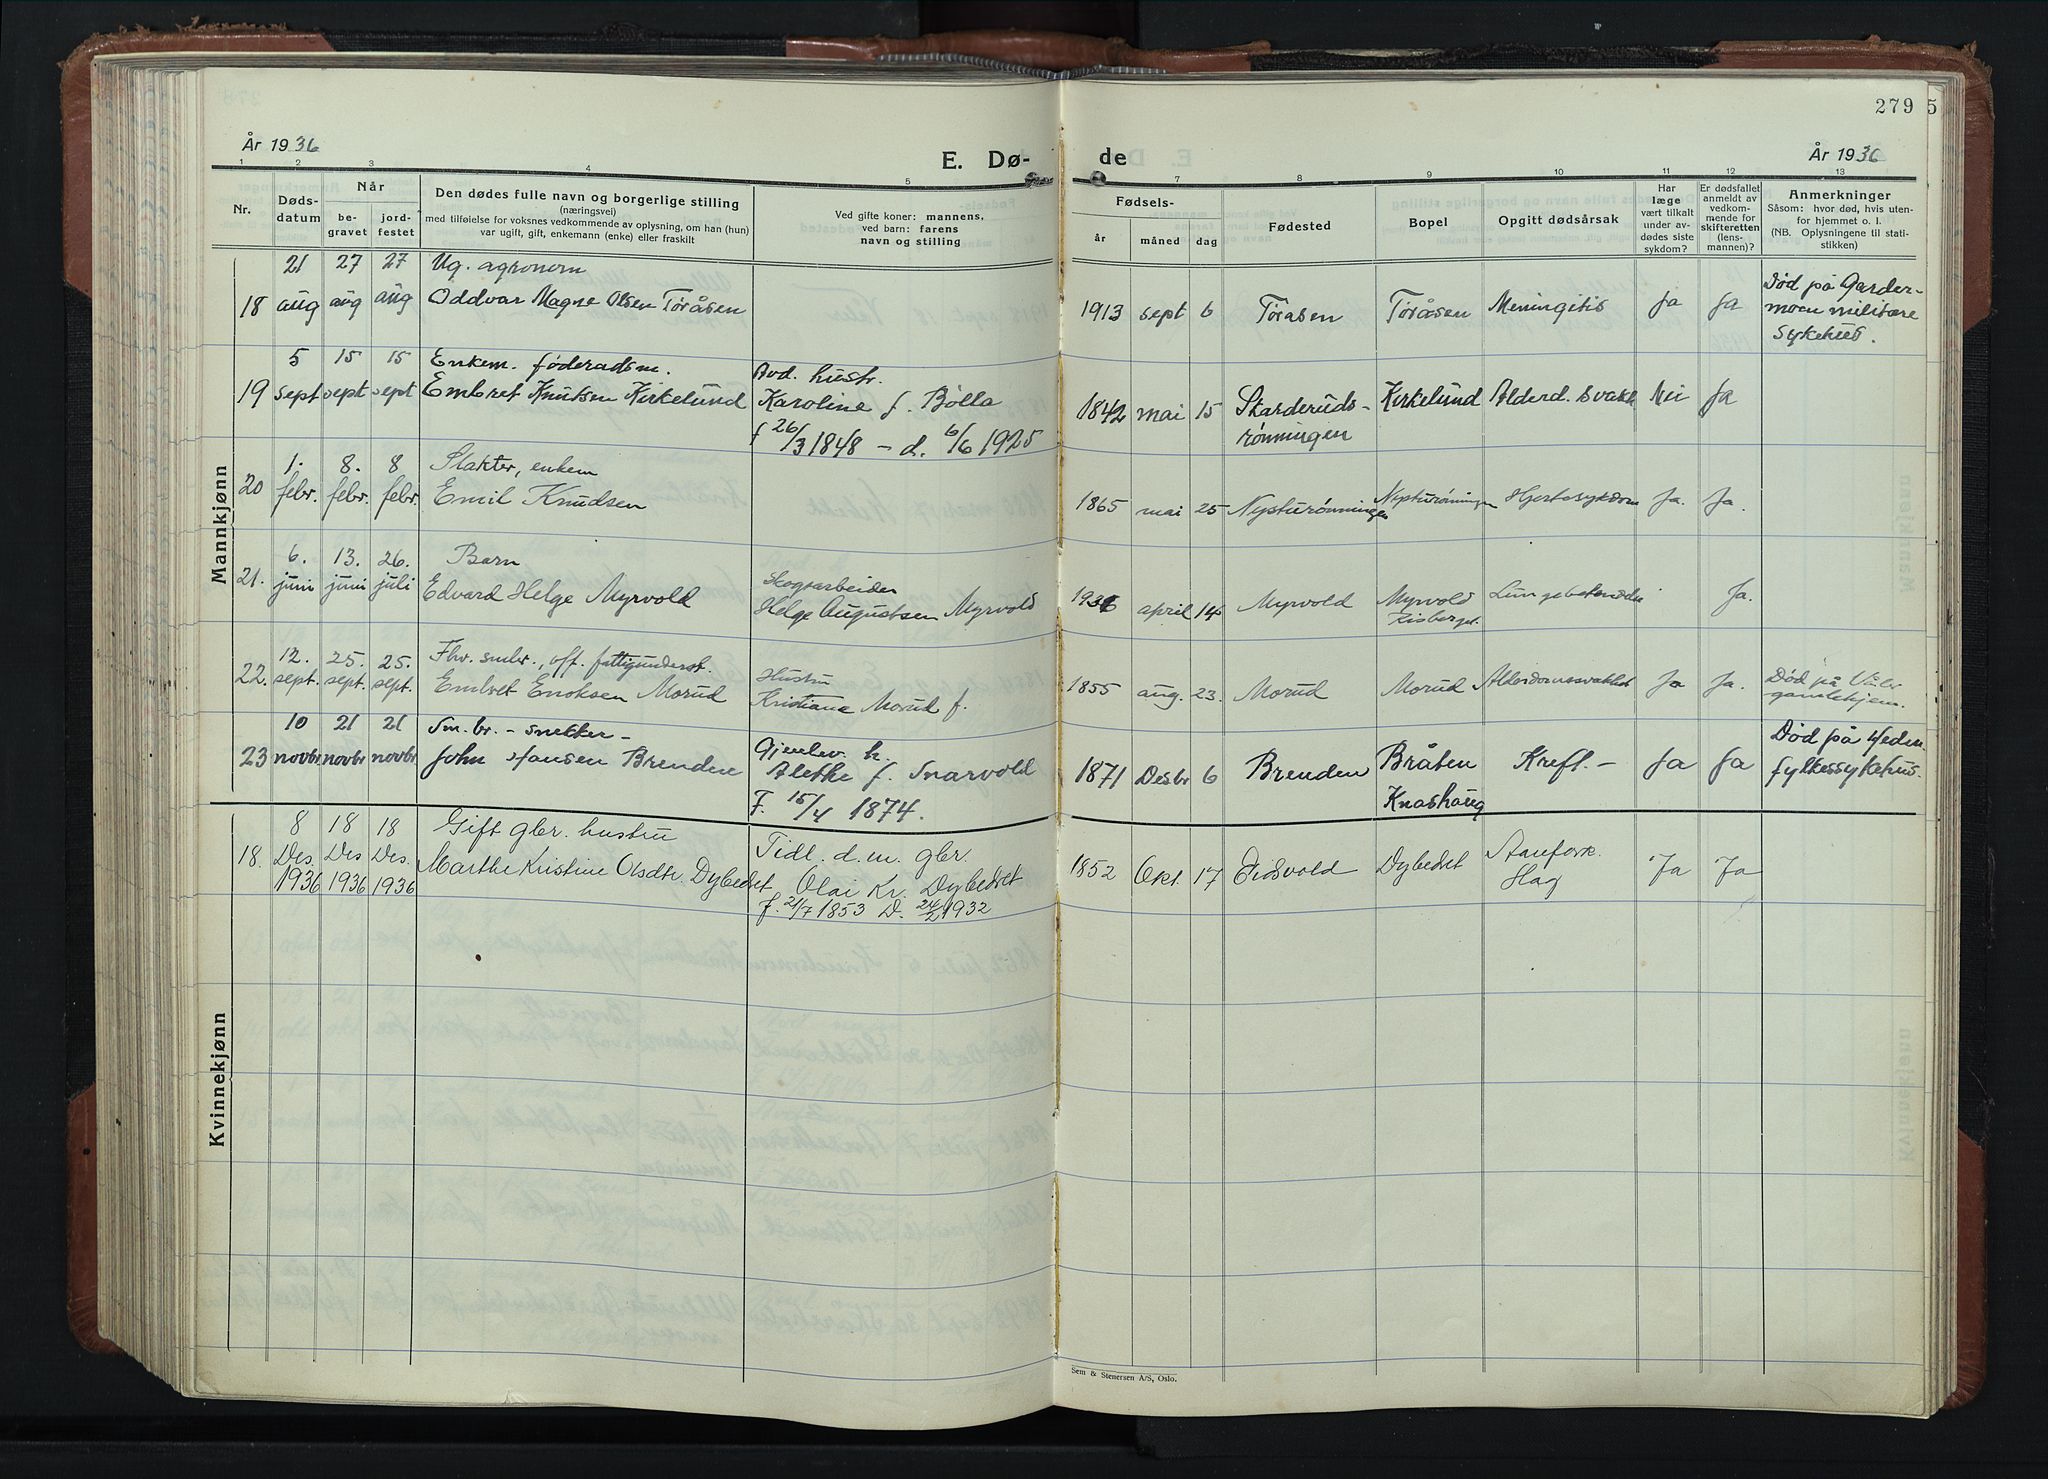 279 5
År 1936
E. Dø-
de
År 1936
1 2 3 4 5 7 8 9 10 11 12 13
Nr.
Døds-
datum
Når
be-
gravet
jord-
festet
Den dødes fulle navn og borgerlige stilling
(næringsvei)
med tilføielse for voksnes vedkommende av oplysning, om han (hun)
var ugift, gift, enkemann (enke) eller fraskilt
Ved gifte koner: mannens,
ved barn: farens
navn og stilling
Fødsels-
år måned dag
Fødested
Bopel
Opgitt dødsårsak
Har
læge
vært tilkalt
under av-
dødes siste
sykdom?
Er dødsfallet
anmeldt av
vedkom-
mende for
skifteretten
(lens-
mannen)?
Anmerkninger
Såsom: hvor død, hvis uten-
for hjemmet o. l.
(NB. Oplysningene til stati-
stikken)
Mannkjønn
21 27 27 Ug. agronom
18 aug aug aug Oddvar Magne Olsen Tøråsen 1913 sept 6 Tøråsen Tøråsen Meningitis Ja Ja
Død på Garder-
moen militære
sykehus.
5 15 15 Enkem. føderadsm. Avd. hustr.
19 sept sept sept Embret Knutsen Kirkelund Karoline f. Bølla 1842 mai 15 Skarderuds- Kirkelund Alderd. svakh Nei Ja
f 26/3 1848 - d. 6/6 1925 rønningen
1. 8. 8 Slakter, enkem
20 febr. febr. febr. Emil Knudsen 1865 mai 25 Nysturønningen Nysturøningen Hjertesykdom Ja. Ja.
6. 13. 26. Barn Skogsarbeider
21. juni juni juli Edvard Helge Myrvold Helge Augustsen Myrvold 1936 april 14 Myrvold Myrvold Ja.
Risberget
12. 25. 25. Fhv. smbr., off. fattigunderst. Hustru
22. sept. sept. sept. Embret Eriksen Morud Kristiane Morud f. 1855 aug. 23. Morud Morud Alderdomssvakhet Ja Ja.
Død på Våler
gamlehjem.
10 21 21 Sm. br. - snekker - Gjenlev. h.
23 novbr novbr novbr John Hansen Brenden Alethe f. Snarvold 1871 Desbr 6 Brenden Bråten Kreft. - Ja Ja
F. 15/4 1874. Knashaug
Død på Hedm.
fylkessykehus.
Kvinnekjønn
8 18 18 Gift gbr. hustru Tidl. d. m. gbr.
18. Des. Des Des. Marthe Kristine Olsdtr. Dybedset Olai Kr. Dybedset 1852 Okt. 17 Eidsvold Dybedset Ja Ja
1936 1936 1936 f. 21/7 1853 D. 24/2 1932
Sem & Stenersen A/S, Oslo.